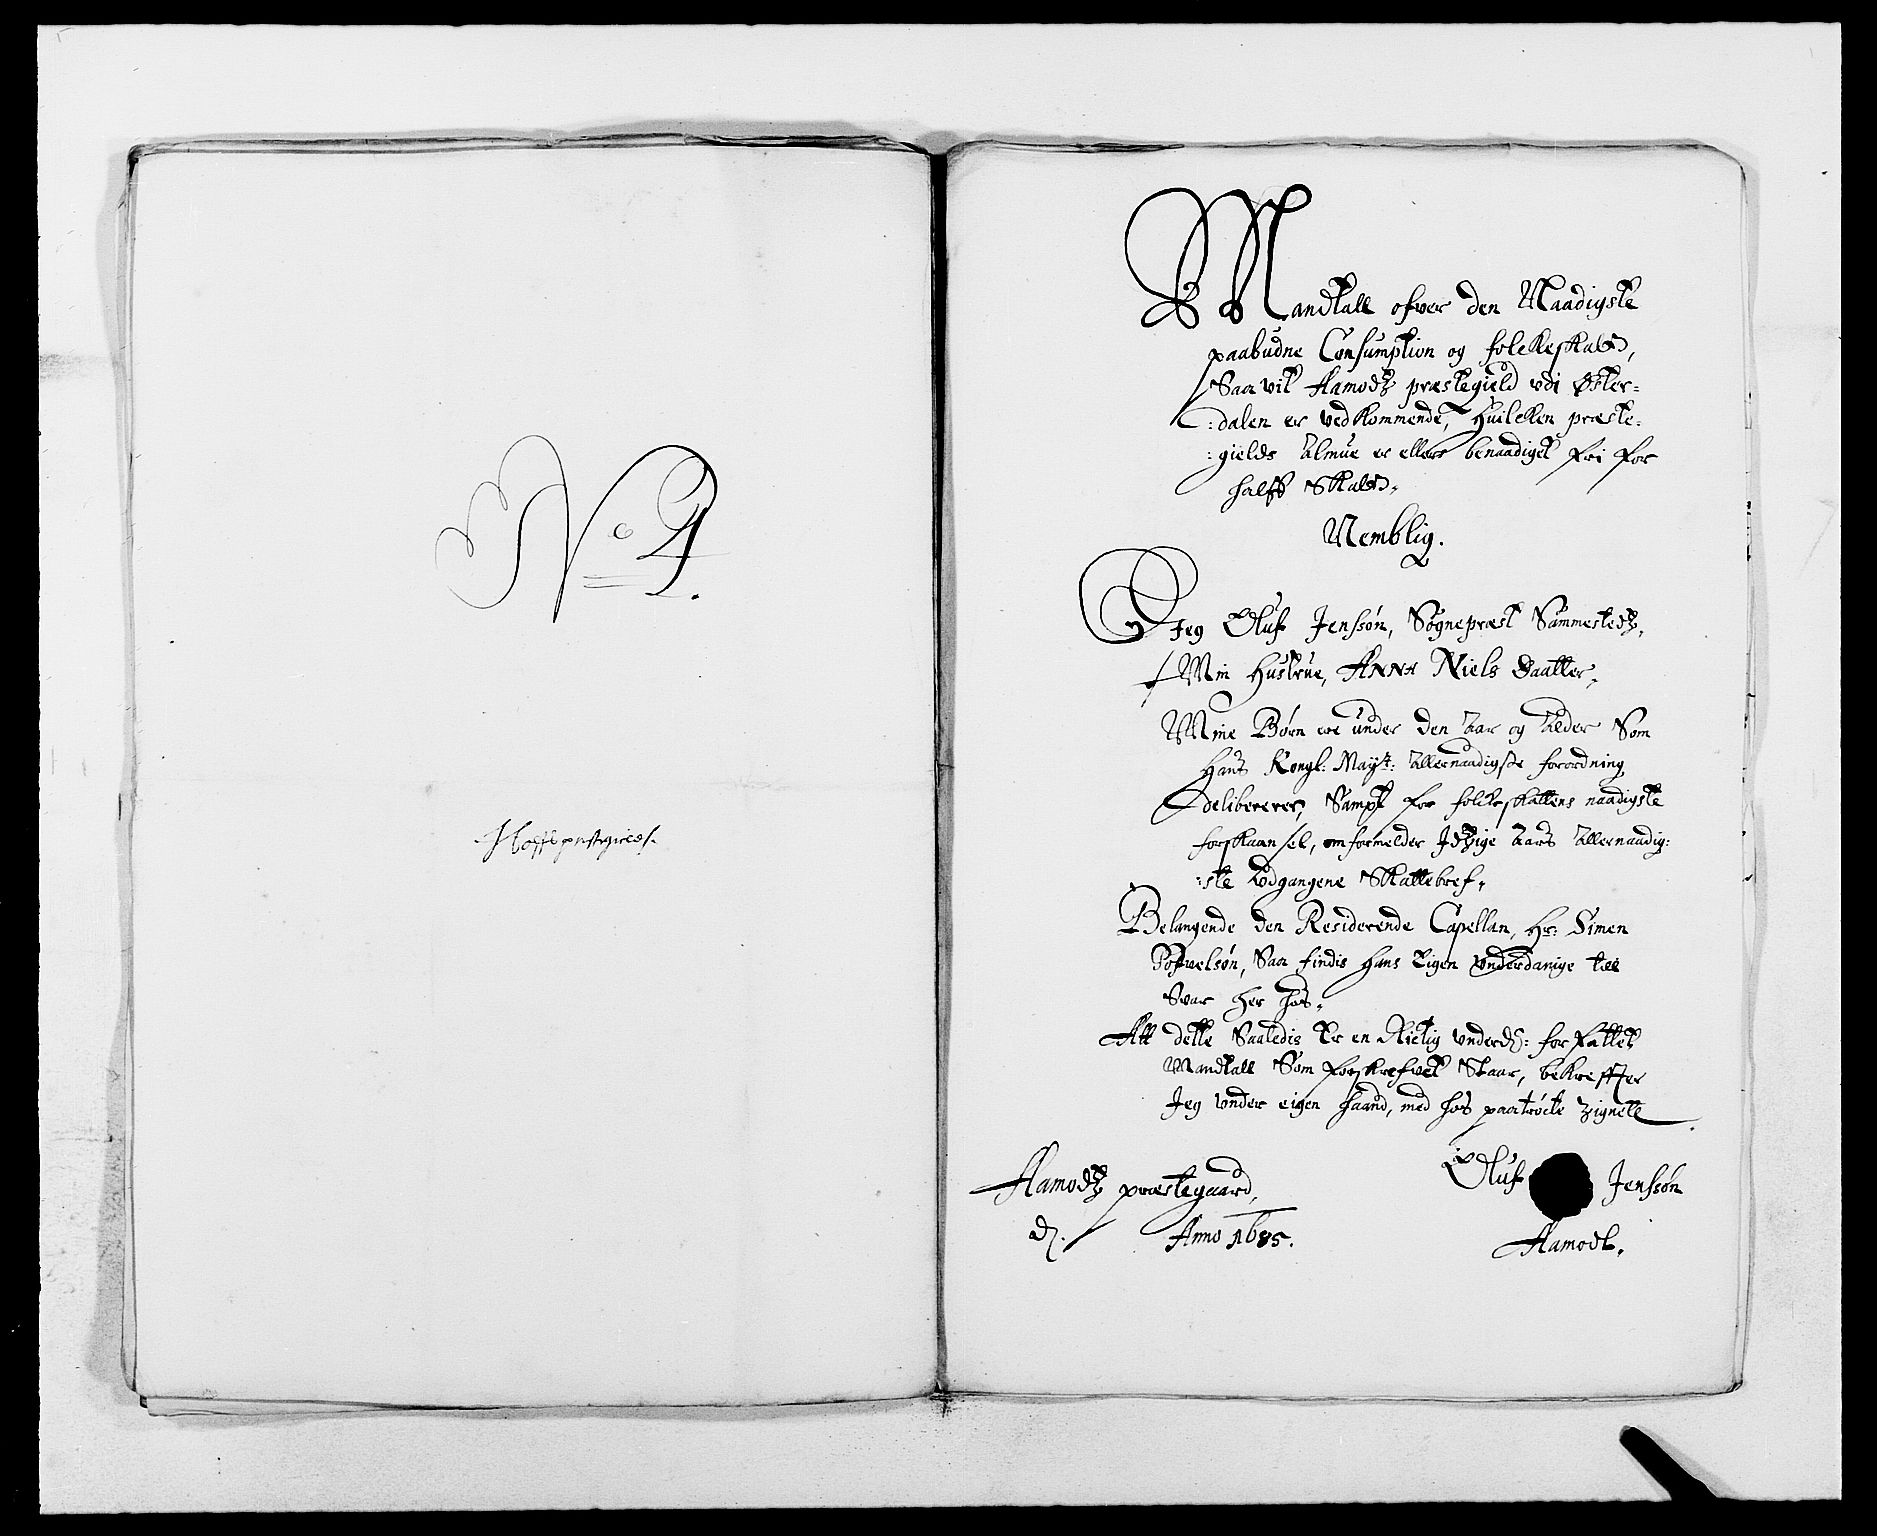 No 4.
Mandtall ofver den Naadigste
paabudne Consumption og folckeskatt,
Saa vit Aamodtz præstegield vdi Øster:
:dalen er vedkommende, Huilcken præste:
:gields Almue er ellers benaadiget fri for
halff Skatt.
Nemblig.
Jeg Oluf Jenssøn, Sognepræst Sammestedtz,
Min Hustrue, Anna Niels Daatter,
Mine Børn ere under den Aar og Alder Som
Hans Kongl: Mayst: Allernaadigste forordning
delibererer, Sampt for folckeskattens naadigste
forskaansel, om formelder Jdtzige Aars Allernaadig:
:ste Vdgangene Skattebref,
Belangende den Residerende Capellan, Hr: Simen
Pofvelsøn, Saa findis Hans Eigen Vnderdanige till
Svar her hos,
Att dette Saaledis Er en Rictig Vnderd: forfattet
Mandtall Som forskrefvet Staar, bekreffter
Jeg Vnder eigen Haand, med hos paatrócte Zignete
Aamodtz præstegaard,
d. Anno 1685.
Oluf Jenssøn
Aamodt.